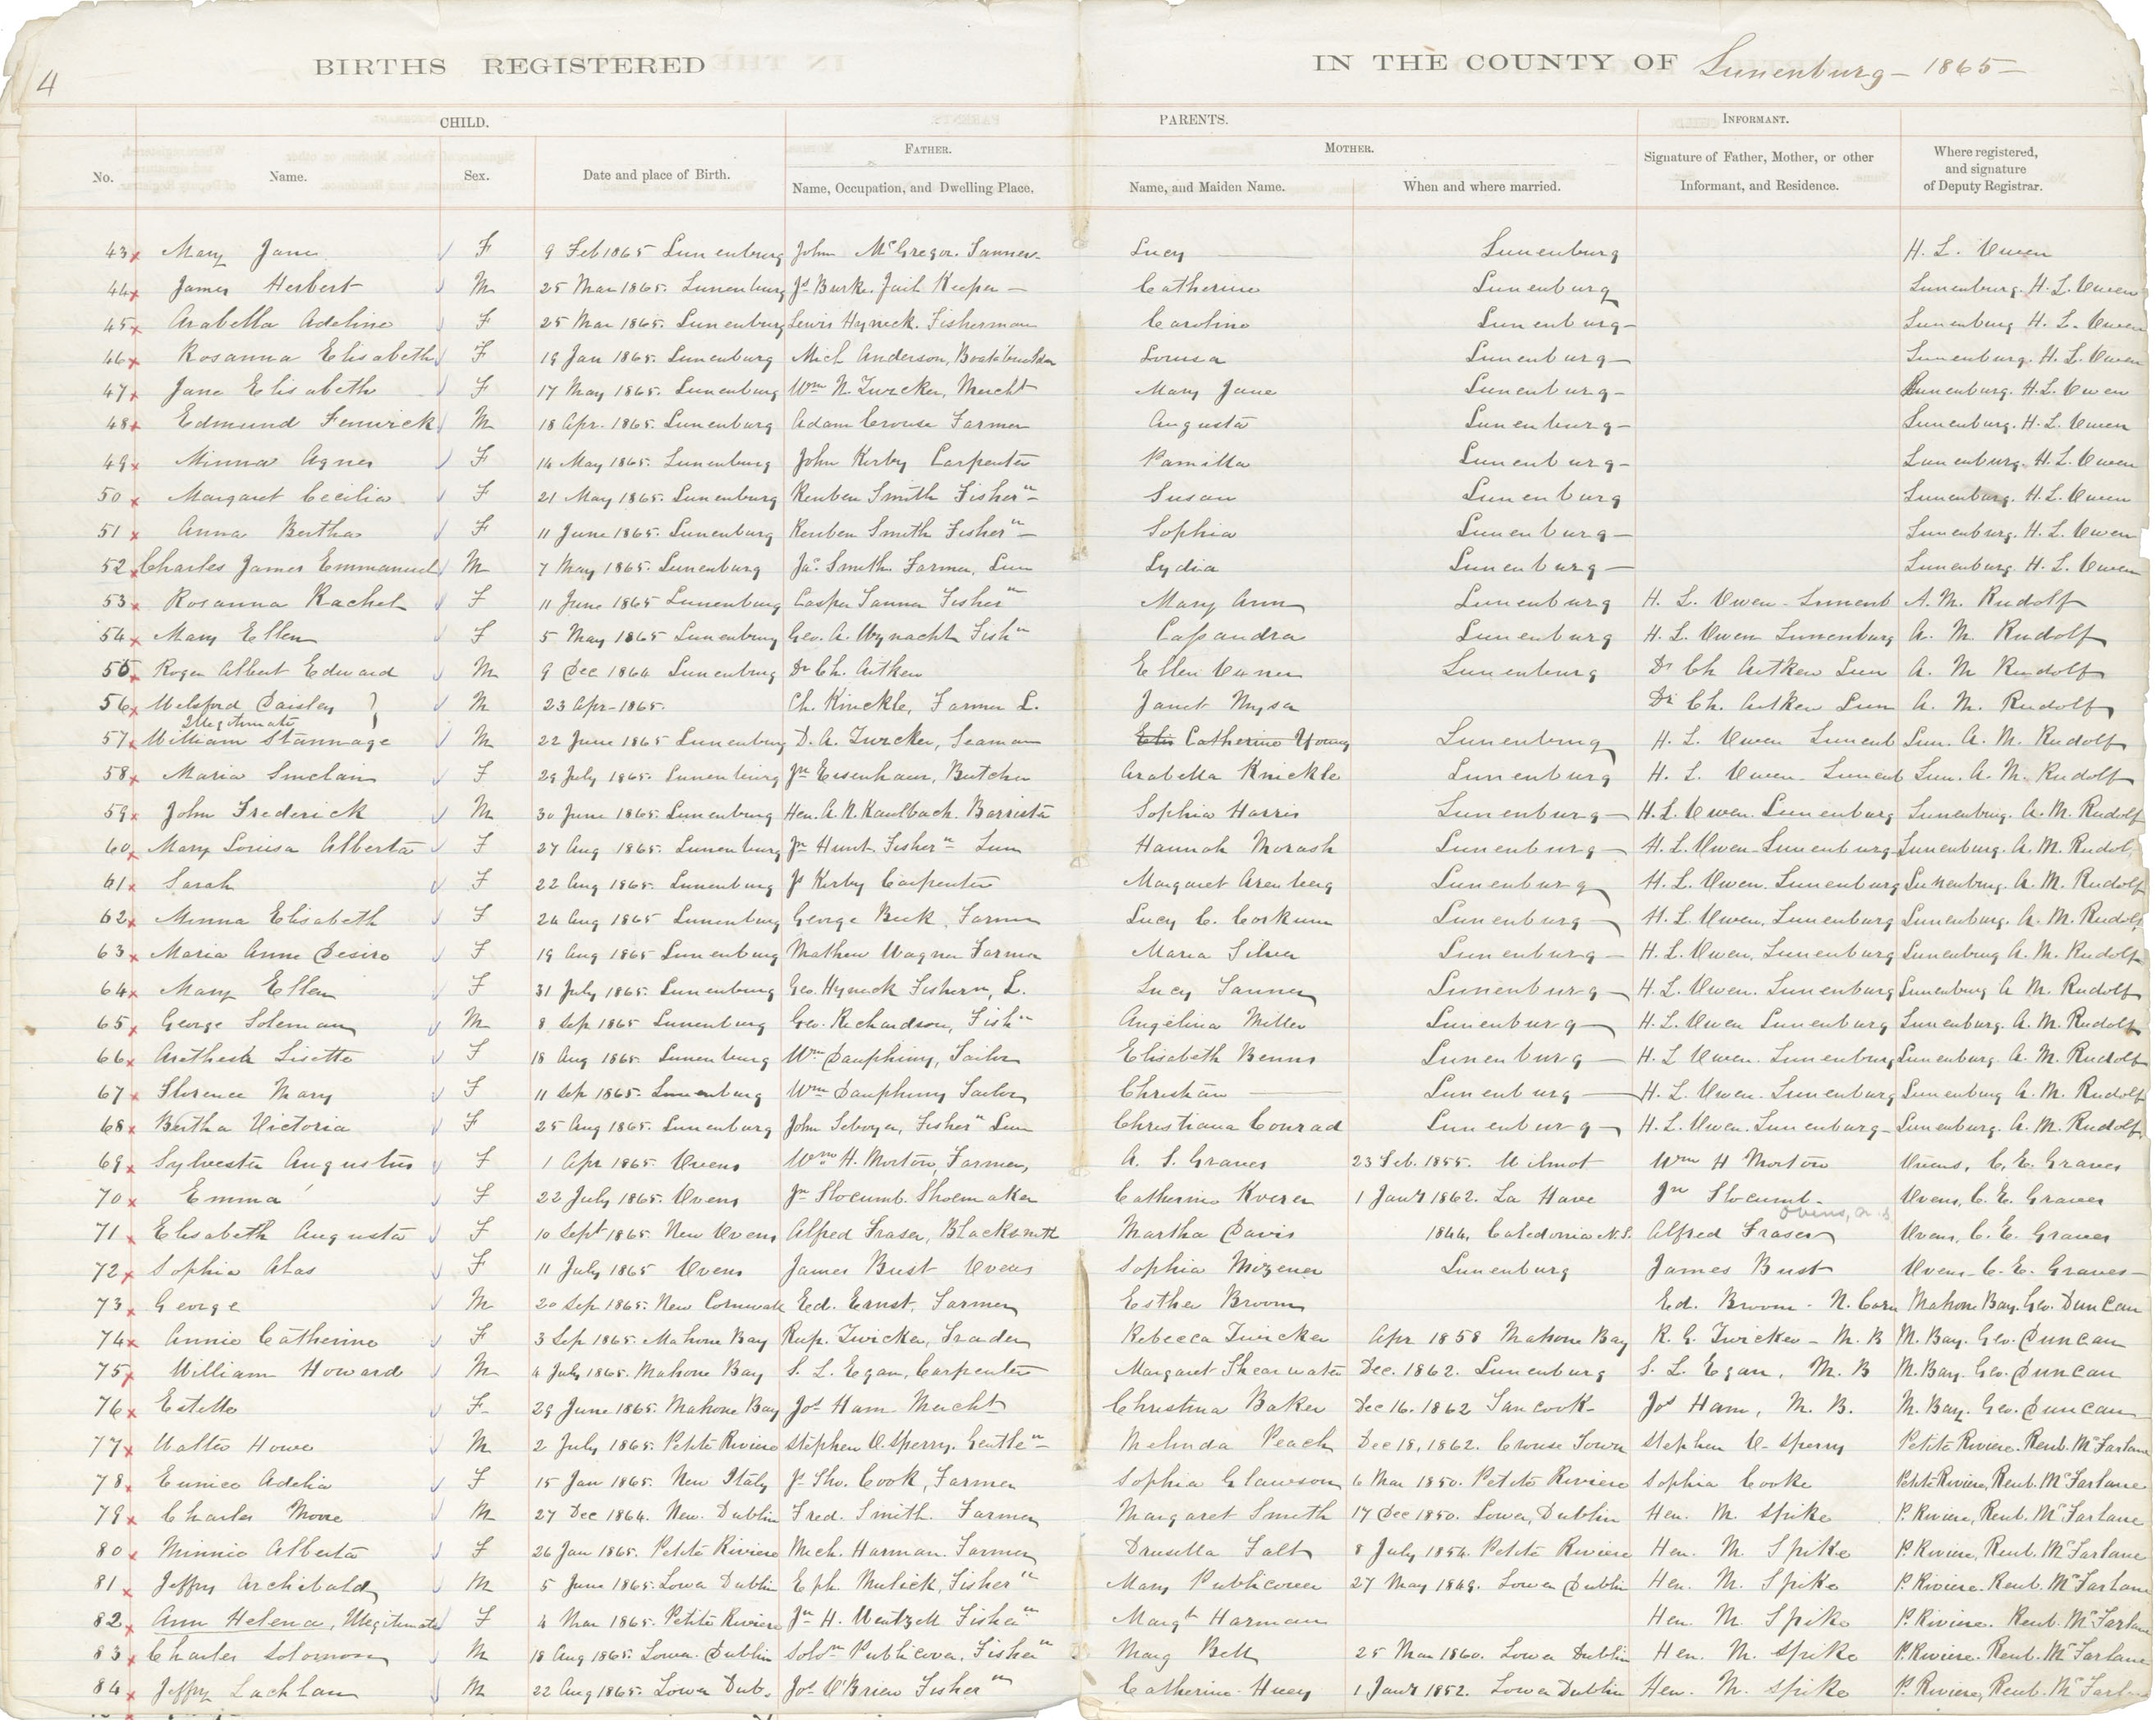 4
BIRTHS REGISTERED IN THE COUNTY OF Lunenburg - 1865 -
CHILD. PARENTS. INFORMANT.
FATHER. MOTHER.
No. Name. Sex. Date and place of Birth. Name, Occupation, and Dwelling Place. Name, and Maiden Name. When and where married. Signature of Father, Mother, or other Informant, and Residence. Where registered, and signature of Deputy Registrar.
43 Mary Jane F 9 Feb 1865 Lunenburg John McGregor. Tanner Lucy Lunenburg H. L. Owen
44 James Herbert M 25 Mar 1865. Lunenburg Js Burke. Jail Keeper - Catherine Lunenburg Lunenburg. H. L. Owen
45 Arabella Adeline F 25 Mar 1865. Lunenburg Lewis Hyneck. Fisherman Caroline Lunenburg - Lunenburg H. L. Owen
46 Rosanna Elisabeth F 19 Jan 1865. Lunenburg Mich Anderson, Boatbuilder Louisa Lunenburg - Lunenburg. H. L. Owen
47 Jane Elisabeth F 17 May 1865. Lunenburg Wm N. Zwicker, Mercht Mary Jane Lunenburg - Lunenburg. H. L. Owen
48 Edmund Fenwick M 18 Apr. 1865. Lunenburg Adam Crouse Farmer Augusta Lunenburg - Lunenburg. H. L. Owen
49 Minna Agnes F 14 May 1865. Lunenburg John Kirby Carpenter Pamilla Lunenburg - Lunenburg. H. L. Owen
50 Margaret Cecilia F 21 May 1865. Lunenburg Reuben Smith Fisher" - Susan Lunenburg Lunenburg. H. L. Owen
51 Anna Bertha F 11 June 1865. Lunenburg Reuben Smith Fisher" - Sophia Lunenburg - Lunenburg. H. L. Owen
52 Charles James Emmanuel M 7 May 1865. Lunenburg Jas. Smith. Farmer, Lun Lydia Lunenburg - Lunenburg. H. L. Owen
53 Rosanna Rachel F 11 June 1865 Lunenburg Casper Tanner Fisher" Mary Ann Lunenburg H. L. Owen - Lunenb A. M. Rudolf
54 Mary Ellen F 5 May 1865 Lunenburg Geo. A. Wynacht Fishn Cassandra Lunenburg H. L. Owen Lunenburg A. M. Rudolf
55 Roger Albert Edward M 9 Dec 1864 Lunenburg Dr Ch. Aitken Ellen Lunenburg Dr Ch Aitken Lun A. M Rudolf
56 Welsford Paisley } M 23 Apr - 1865. Ch. Knickle, Farmer L. Janet Mysa Dr Ch. Aitken Lun A. M. Rudolf
Illegitimate
57 William Stannage M 22 June 1865 Lunenburg D. A. Zwicker, Seaman Catherine Young Lunenburg H. L. Owen Lunenb Lun. A. M. Rudolf
58 Maria Sinclair F 29 July 1865. Lunenburg Jn Eisenhauer, Butcher Arabella Knickle Lunenburg H. L. Owen - Lunenb Lun. A. M. Rudolf
59 John Frederick M 30 June 1865. Lunenburg Hen. A. N. Kaulbach. Barrister Sophia Harris Lunenburg - H. L. Owen. Lunenburg Lunenburg. A. M. Rudolf
60 Mary Louisa Alberta F 27 Aug 1865. Lunenburg Jn Hunt. Fisher" Lun Hannah Morash Lunenburg - H. L. Owen - Lunenburg Lunenburg. A. M. Rudol
61 Sarah F 22 Aug 1865. Lunenburg Js Kirby Carpenter Margaret Arenberg Lunenburg H. L. Owen. Lunenburg Lunenburg. A. M. Rudolf
62 Minna Elisabeth F 24 Aug 1865 Lunenburg George Beck, Farmer Lucy C. Corkum Lunenburg H. L. Owen. Lunenburg Lunenburg. A. M. Rudolf
63 Maria Anne Desire F 19 Aug 1865 Lunenburg Mathew Wagner Farmer Maria Silver Lunenburg - H. L. Owen, Lunenburg Lunenburg A. M. Rudolf
64 Mary Ellen F 31 July 1865. Lunenburg Geo. Hyneck Fishern, L. Lucy Tanner Lunenburg - H. L. Owen. Lunenburg Lunenburg A M. Rudolf
65 George Soleman M 8 Sep 1865 Lunenburg Geo. Richardson, Fishn Angelina Miller Lunenburg H. L. Owen Lunenburg Lunenburg. A. M. Rudolf
66 Lisette F 18 Aug 1865. Lunenburg Wm Dauphiny, Tailor Elisabeth Benns Lunenburg - H. L Owen. Lunenburg Lunenburg. A. M. Rudolf
67 Florence Mary F 11 Sep 1865. Lunenburg Wm Dauphiny Tailor Christian Lunenburg - H. L. Owen. Lunenburg Lunenburg A. M. Rudolf
68 Bertha Victoria F 25 Aug 1865. Lunenburg John Seboyer, Fisher" Lun Christiana Conrad Lunenburg H. L. Owen. Lunenburg - Lunenburg. A. M. Rudolf
69 Sylvester Augustus F 1 Apr 1865. Ovens Wm H. Morton, Farmer, A. S. Graves 23 Feb. 1855. Wilmot Wm H Morton Ovens, C. E. Graves
70 Emma F 22 July 1865. Ovens Jn Slocumb. Shoemaker Catherine 1 Jany 1862. La Have Jn Slocumb. Ovens, C. E. Graves
Ovens, N.S.
71 Elisabeth Augusta F 10 Sept 1865. New Ovens Alfred Fraser, Blacksmith Martha Davis 1844, Caledonia N.S. Alfred Fraser Ovens, C. E. Graves
72 Sophia Alas F 11 July 1865 Ovens James Bust Ovens Sophia Mozener Lunenburg James Bust Ovens - C. E. Graves -
73 George M 20 Sep 1865. New Cornwall Ed. Ernst. Farmer Esther Broom Ed. Broom - N. Corn Mahone Bay. Geo. Duncan
74 Annie Catherine F 3 Sep 1865. Mahone Bay Rup. Zwicker, Trader Rebecca Zwicker Apr 1858 Mahone Bay R. G. Zwicker - M. B M. Bay. Geo. Duncan
75 William Howard M 4 July 1865. Mahone Bay S. L. Egan, Carpenter Margaret Shearwater Dec. 1862. Lunenburg S. L. Egan, M. B M. Bay. Geo. Duncan
76 Estelle F - 29 June 1865. Mahone Bay Jos Ham Mercht Christina Baker Dec 16. 1862 Tancook - Jos Ham, M. B. M. Bay. Geo. Duncan
77 Walter Howe M 2 July 1865. Petite Riviere Stephen O. Sperry. Gentle" - Melinda Peach Dec 18, 1862. Crouse Town Stephen O - Sperry Petite Riviere. Reub. McFarlane
78 Eunice Adelia F 15 Jan 1865. New Italy Js Tho. Cook, Farmer Sophia Glawson 6 Mar 1850. Petite Riviere Sophia Cooke Petite Riviere, Reub. McFarlane
79 Charles Moore M 27 Dec 1864. New Dublin Fred. Smith. Farmer Margaret Smith 17 Dec 1850. Lower Dublin Hen. M. Spike P. Riviere, Reub. McFarlane
80 Minnie Alberta F 26 Jan 1865. Petite Riviere Mich. Harman. Farmer Drusella Falt 8 July 1854. Petite Riviere Hen. M. Spike P. Riviere, Reub. McFarlane
81 Jeffry Archibald M 5 June 1865. Lower Dublin Eph. Mulick, Fisher" Mary Publicover 27 May 1849. Lower Dublin Hen. M. Spike P. Riviere. Reub. McFarlane
82 Ann Helena, Illegitimate F 4 Mar 1865. Petite Riviere Jn H. Wentzell Fisher" Margt Harman Hen. M. Spike P. Riviere. Reub. McFarlane
83 Charles Solomon M 18 Aug 1865. Lower Dublin Soln Publicover, Fisher" Marg Bell 25 Mar 1860. Lower Dublin Hen. M. Spike P. Riviere. Reub. McFarlane
84 Jeffry Lachlan M 22 Aug 1865. Lower Dub. Jos O'Brien Fisher" Catherine Huey 1 Jany 1852. Lower Dublin Hen. M. Spike P. Riviere, Reub. McFarlane